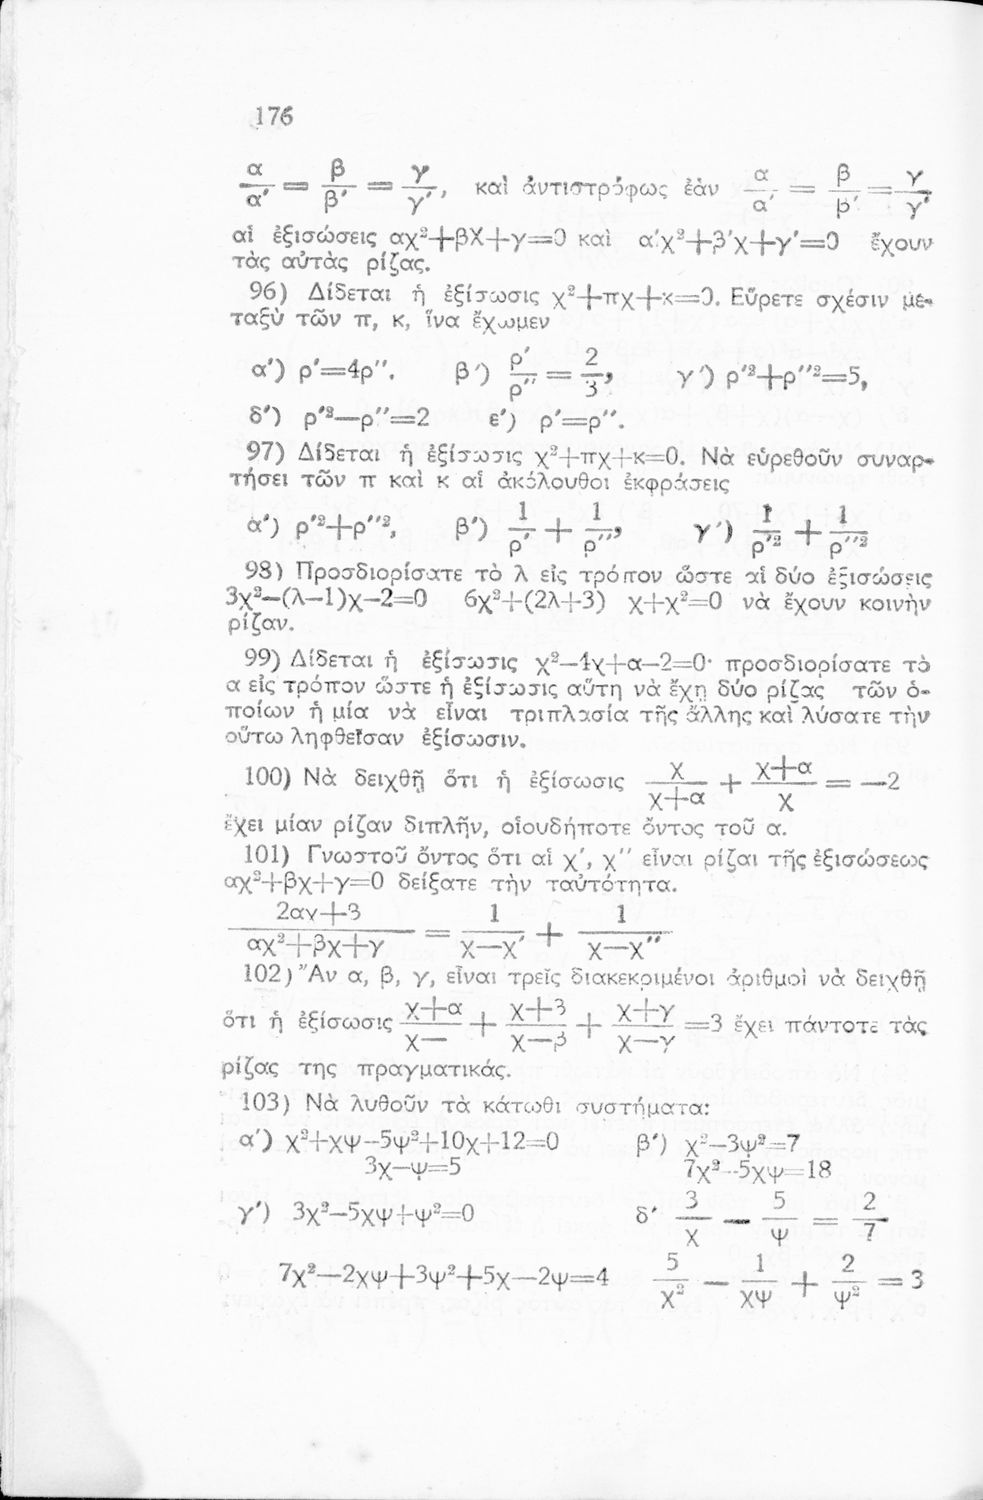 176
α/α' = β/β' = γ/γ', καὶ ἀντιστρόφως ἐὰν α/α' = β/β' = γ/γ',
αἱ ἐξισώσεις αχ²+βΧ+γ=0 καὶ α'χ²+β'χ+γ'=0 ἔχουν
τὰς αὐτὰς ρίζας.
96) Δίδεται ἡ ἐξίσωσις χ²+πχ+κ=0. Εὕρετε σχέσιν με-
ταξὺ τῶν π, κ, ἵνα ἔχωμεν
α') ρ'=4ρ''. β') ρ'/ρ'' = 2/3, γ') ρ'²+ρ''²=5,
δ') ρ'²—ρ''=2 ε') ρ'=ρ''.
97) Δίδεται ἡ ἐξίσωσις χ²+πχ+κ=0. Νὰ εὑρεθοῦν συναρ-
τήσει τῶν π καὶ κ αἱ ἀκόλουθοι ἐκφράσεις
α') ρ'²+ρ''², β') 1/ρ' + 1/ρ'', γ') 1/ρ'² + 1/ρ''²
98) Προσδιορίσατε τὸ λ εἰς τρόπον ὥστε αἱ δύο ἐξισώσεις
3χ²—(λ—1)χ—2=0 6χ²+(2λ+3) χ+χ²=0 νὰ ἔχουν κοινὴν
ρίζαν.
99) Δίδεται ἡ ἐξίσωσις χ²—4χ+α—2=0· προσδιορίσατε τὸ
α εἰς τρόπον ὥστε ἡ ἐξίσωσις αὕτη νὰ ἔχῃ δύο ρίζας τῶν ὁ-
ποίων ἡ μία νὰ εἶναι τριπλασία τῆς ἄλλης καὶ λύσατε τὴν
οὕτω ληφθεῖσαν ἐξίσωσιν.
100) Νὰ δειχθῇ ὅτι ἡ ἐξίσωσις χ/(χ+α) + (χ+α)/χ = —2
ἔχει μίαν ρίζαν διπλῆν, οἱουδήποτε ὄντος τοῦ α.
101) Γνωστοῦ ὄντος ὅτι αἱ χ', χ'' εἶναι ρίζαι τῆς ἐξισώσεως
αχ²+βχ+γ=0 δείξατε τὴν ταὐτότητα.
(2αγ+β)/(αχ²+βχ+γ) = 1/(χ—χ') + 1/(χ—χ'')
102) Ἂν α, β, γ, εἶναι τρεῖς διακεκριμένοι ἀριθμοὶ νὰ δειχθῇ
ὅτι ἡ ἐξίσωσις (χ+α)/(χ—) + (χ+β)/(χ—β) + (χ+γ)/(χ—γ) =3 ἔχει πάντοτε τὰς
ρίζας της πραγματικάς.
103) Νὰ λυθοῦν τὰ κάτωθι συστήματα:
α') χ²+χψ—5ψ²+10χ+12=0 β') χ²—3ψ²=7
3χ—ψ=5 7χ²—5χψ=18
γ') 3χ²—5χψ+ψ²=0 δ' 3/χ — 5/ψ = 2/7
7χ²—2χψ+3ψ²+5χ—2ψ=4 5/χ² — 1/χψ + 2/ψ² = 3